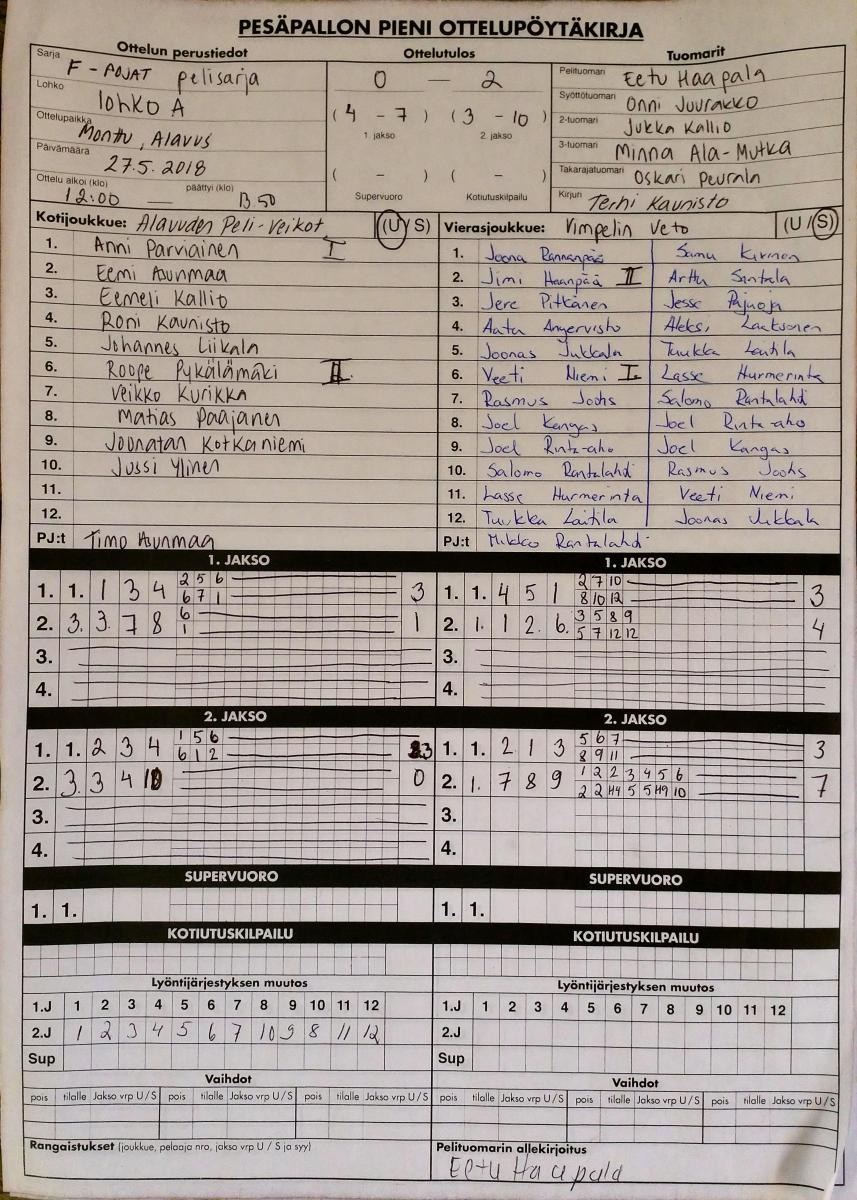 PESÄPALLON PIENI OTTELUPÖYTÄKIRJA
Ottelun perustiedot
Sarja F - POJAT pelisarja
Lohko lohko A
Ottelupaikka Monttu, Alavus
Päivämäärä 27.5. 2018
Ottelu alkoi (klo) 12:00 — päättyi (klo) 13.50
Ottelutulos
0 — 2
( 4 - 7 ) ( 3 - 10 )
1. jakso 2. jakso
( - ) ( - )
Supervuoro Kotiutuskilpailu
Tuomarit
Pelituomari Eetu Haapala
Syöttötuomari Onni Juurakko
2-tuomari Jukka Kallio
3-tuomari Minna Ala-Mutka
Takarajatuomari Oskari Peurala
Kirjuri Terhi Kaunisto
Kotijoukkue: Alavuden Peli-Veikot (U / S)
1. Anni Parviainen I
2. Eemi Asunmaa
3. Eemeli Kallio
4. Roni Kaunisto
5. Johannes Liikala
6. Roope Pykälämäki II
7. Veikko Kurikka
8. Matias Paajanen
9. Joonatan Kotkaniemi
10. Jussi Ylinen
11.
12.
PJ:t Timo Asunmaa
Vierasjoukkue: Vimpelin Veto (U / S)
1. Joona Rannanpää Samu Kirmen
2. Jimi Haanpää II Arttu Santala
3. Jere Pitkänen Jesse Pajuoja
4. Aatu Angervisto Aleksi Laaksonen
5. Joonas Jukkala Tuukka Laitila
6. Veeti Niemi I Lasse Hurmerinta
7. Rasmus Joohs Salomo Rantalahdi
8. Joel Kangas Joel Rinta-aho
9. Joel Rinta-aho Joel Kangas
10. Salomo Rantalahdi Rasmus Joohs
11. Lasse Hurmerinta Veeti Niemi
12. Tuukka Laitila Joonas Jukkala
PJ:t Mikko Rantalahdi
1. JAKSO
1. 1. 1 3 4 2 5 6 3
6 7 1
2. 3. 3. 7 8 6 1
1
3.
4.
1. JAKSO
1. 1. 4 5 1 2 7 10 3
8 10 12
2. 1. 1 2. 6. 3 5 8 9 4
5 7 12 12
3.
4.
2. JAKSO
1. 1. 2 3 4 1 5 6 3
6 1 2
2. 3. 3 4 10 0
3.
4.
2. JAKSO
1. 1. 2 1 3 5 6 7 3
8 9 11
2. 1. 7 8 9 1 2 2 3 4 5 6 7
2 2 5 5 10
3.
4.
SUPERVUORO
1. 1.
SUPERVUORO
1. 1.
KOTIUTUSKILPAILU
KOTIUTUSKILPAILU
Lyöntijärjestyksen muutos
1.J 1 2 3 4 5 6 7 8 9 10 11 12
2.J 1 2 3 4 5 6 7 10 9 8 11 12
Sup
Lyöntijärjestyksen muutos
1.J 1 2 3 4 5 6 7 8 9 10 11 12
2.J
Sup
Vaihdot
pois tilalle Jakso vrp U / S pois tilalle Jakso vrp U / S pois tilalle Jakso vrp U / S
Vaihdot
pois tilalle Jakso vrp U / S pois tilalle Jakso vrp U / S pois tilalle Jakso vrp U / S
Rangaistukset (joukkue, pelaaja nro, jakso vrp U / S ja syy)
Pelituomarin allekirjoitus
Eetu Haapala